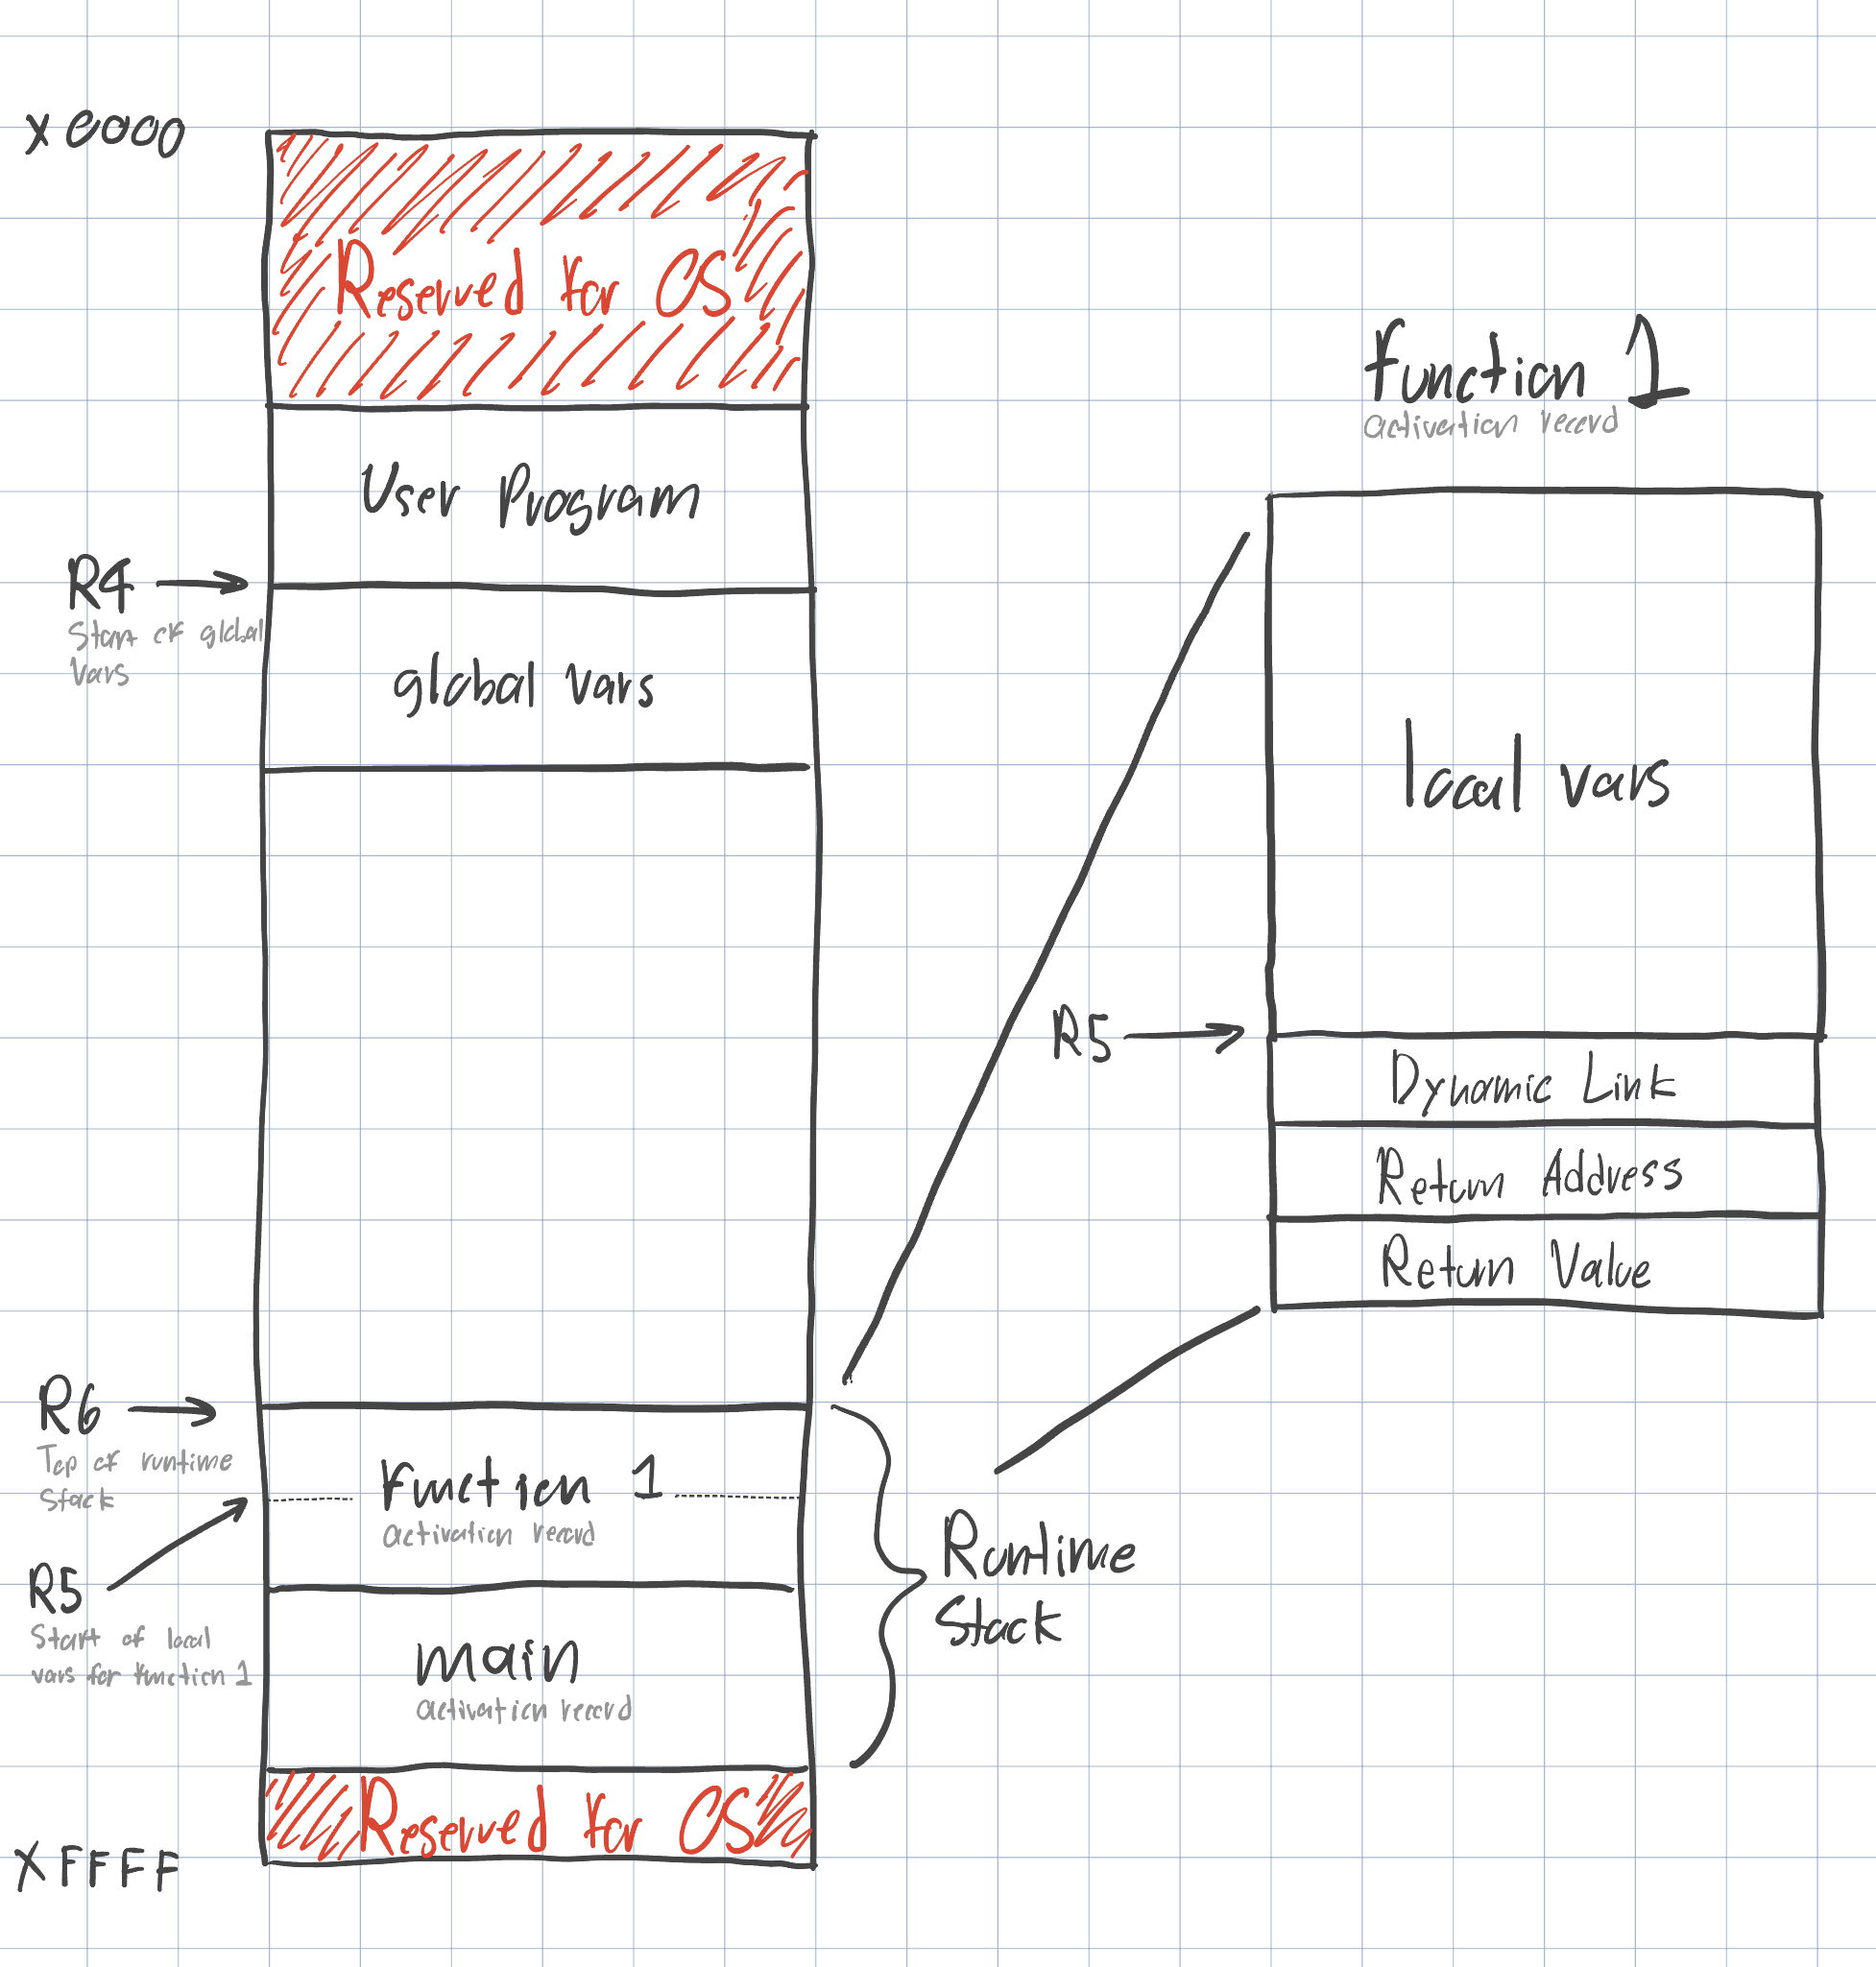 x0000
Reserved for OS
User Program
R4
Start of global
vars
global vars
R6
Top of runtime
stack
function 1
activation record
R5
Start of local
vars for function 1
main
activation record
Runtime
Stack
Reserved for OS
xFFFF
function 1
activation record
local vars
R5
Dynamic Link
Return Address
Return Value